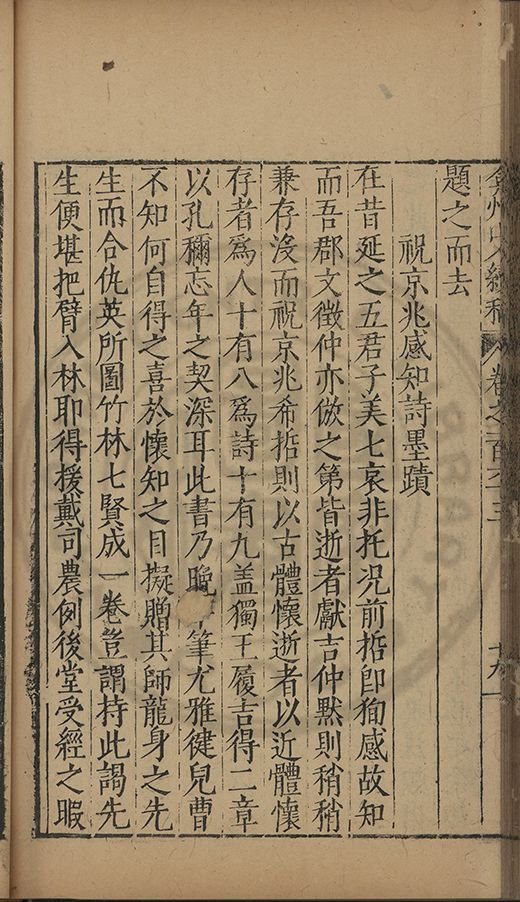 弇州山人續稿 卷之一百六十三 十九
題之而去
祝京兆感知詩墨蹟
在昔延之五君子美七哀非托況前喆即狥感故知
而吾郡文徵仲亦倣之第皆逝者獻吉仲默則稍稍
兼存沒而祝京兆希喆則以古體懷逝者以近體懷
存者爲人十有八爲詩十有九盖獨王履吉得二章
以孔禰忘年之契深耳此書乃晚筆尤雅健兒曹
不知何自得之喜於懷知之目擬贈其師龍身之先
生而合仇英所圖竹林七賢成一卷豈謂持此謁先
生便堪把臂入林耶得援戴司農例後堂受經之暇